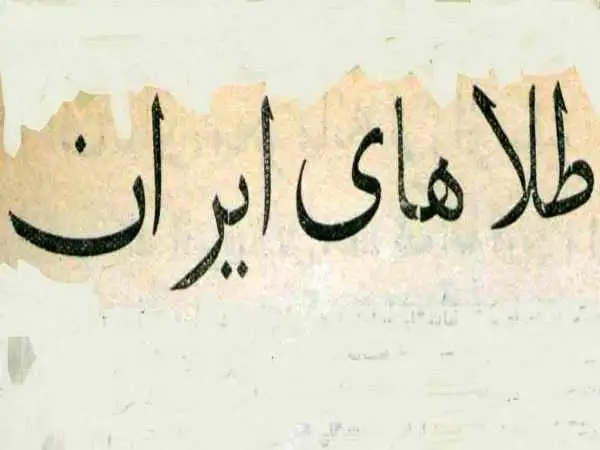 طلا های ایران